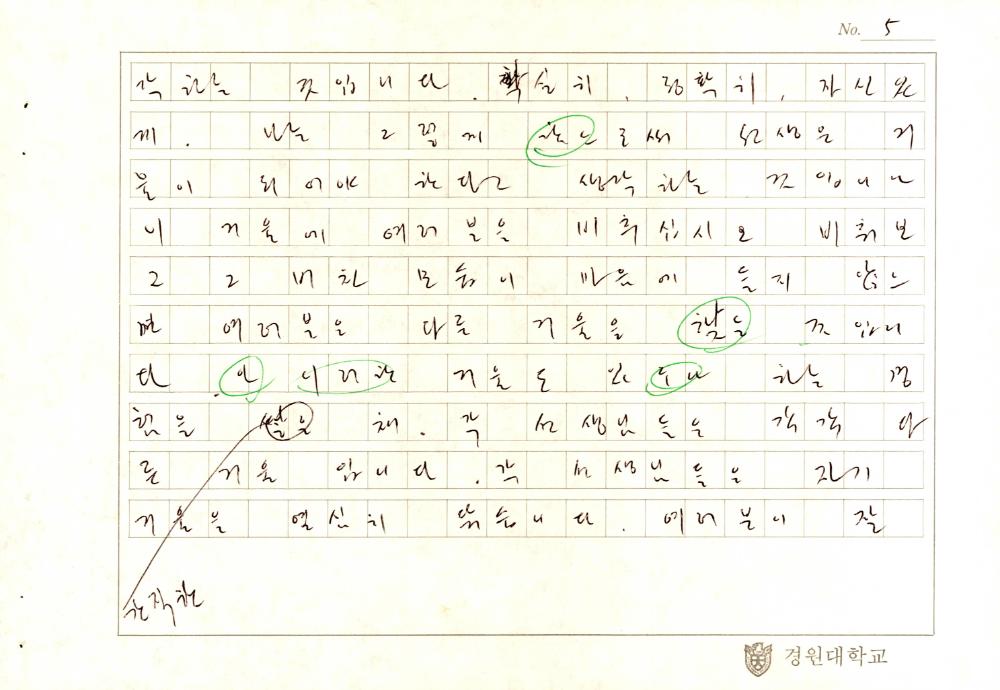 No. 5
각하는 것입니다. 확실히, 정확히, 자신있
게. 나는 그렇게 함으로써 선생은 거
울이 되어야 한다고 생각하는 것입니다
이 거울에 여러분을 비추십시오 비춰보
고 그 비친 모습이 마음에 들지 않으
면 여러분은 다른 거울을 찾을 것입니
다. 아 이러한 거울도 있구나 하는 경
험을 쌓은 채. 각 선생님들은 각각 다
른 거울입니다. 각 선생님들은 자기
거울을 열심히 닦습니다. 여러분이 잘
간직한
경원대학교